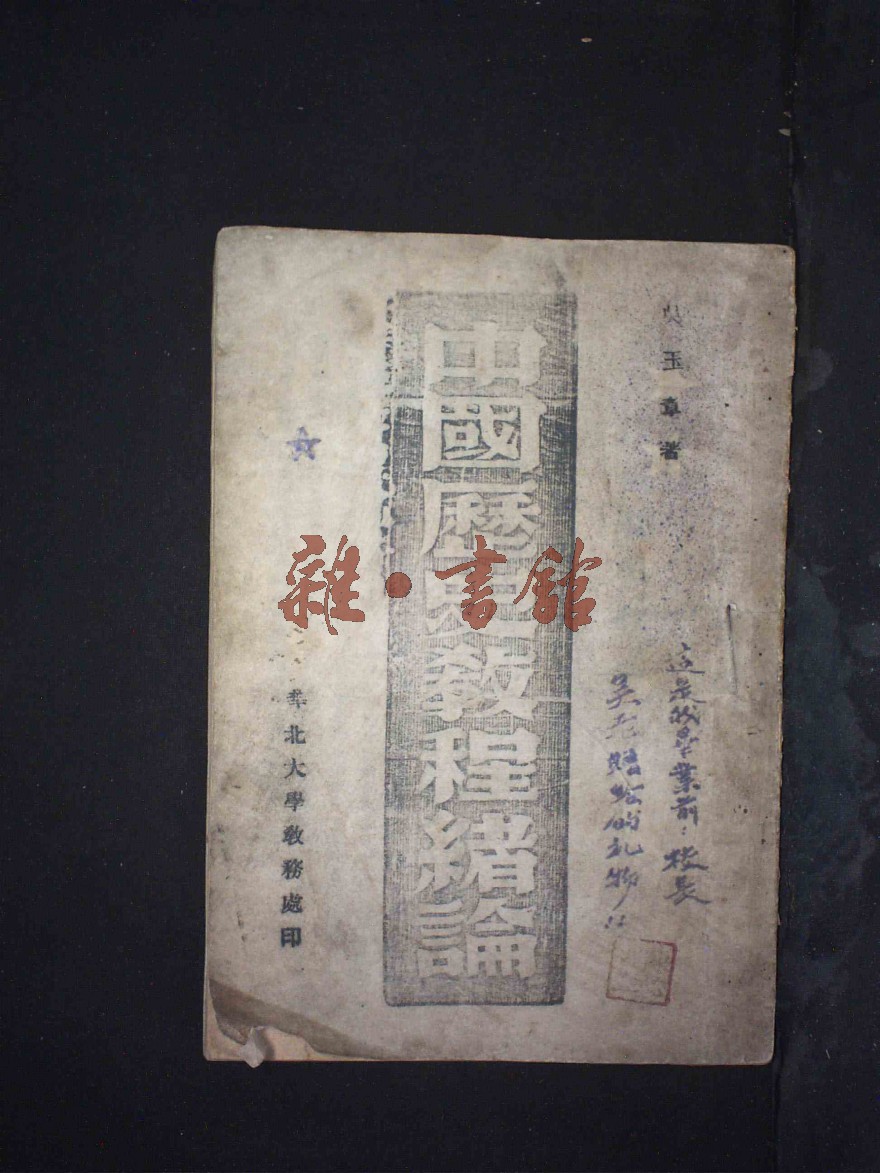 吳玉章著
這是我畢業前：校長
吳老贈給的礼物!!
中國歷史教程緒論
華北大學教務處印
雜·書館